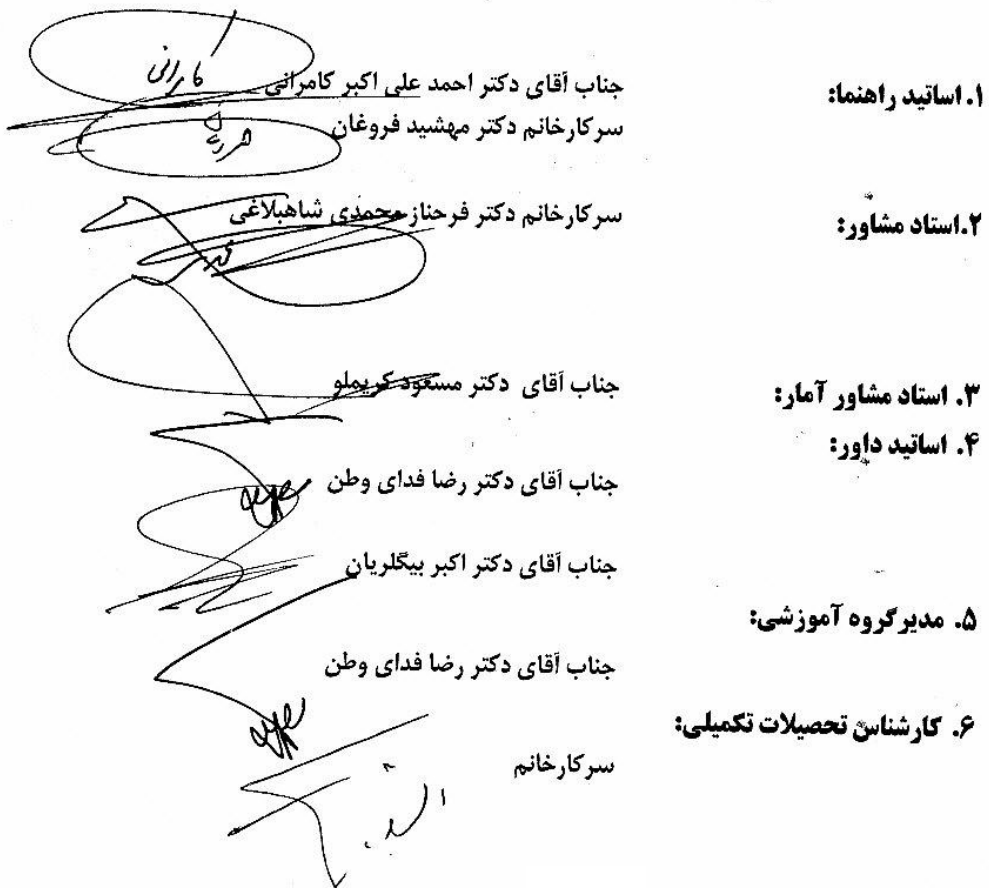 ۱. اساتید راهنما: جناب آقای دکتر احمد علی اکبر کامرانی
سرکارخانم دکتر مهشید فروغان
۲.استاد مشاور: سرکارخانم دکتر فرحناز محمدی شاهبلاغی
۳. استاد مشاور آمار: جناب آقای دکتر مسعود کریملو
۴. اساتید داور:
جناب آقای دکتر رضا فدای وطن
جناب آقای دکتر اکبر بیگلریان
۵. مدیرگروه آموزشی:
جناب آقای دکتر رضا فدای وطن
۶. کارشناس تحصیلات تکمیلی:
سرکارخانم
کامرانی